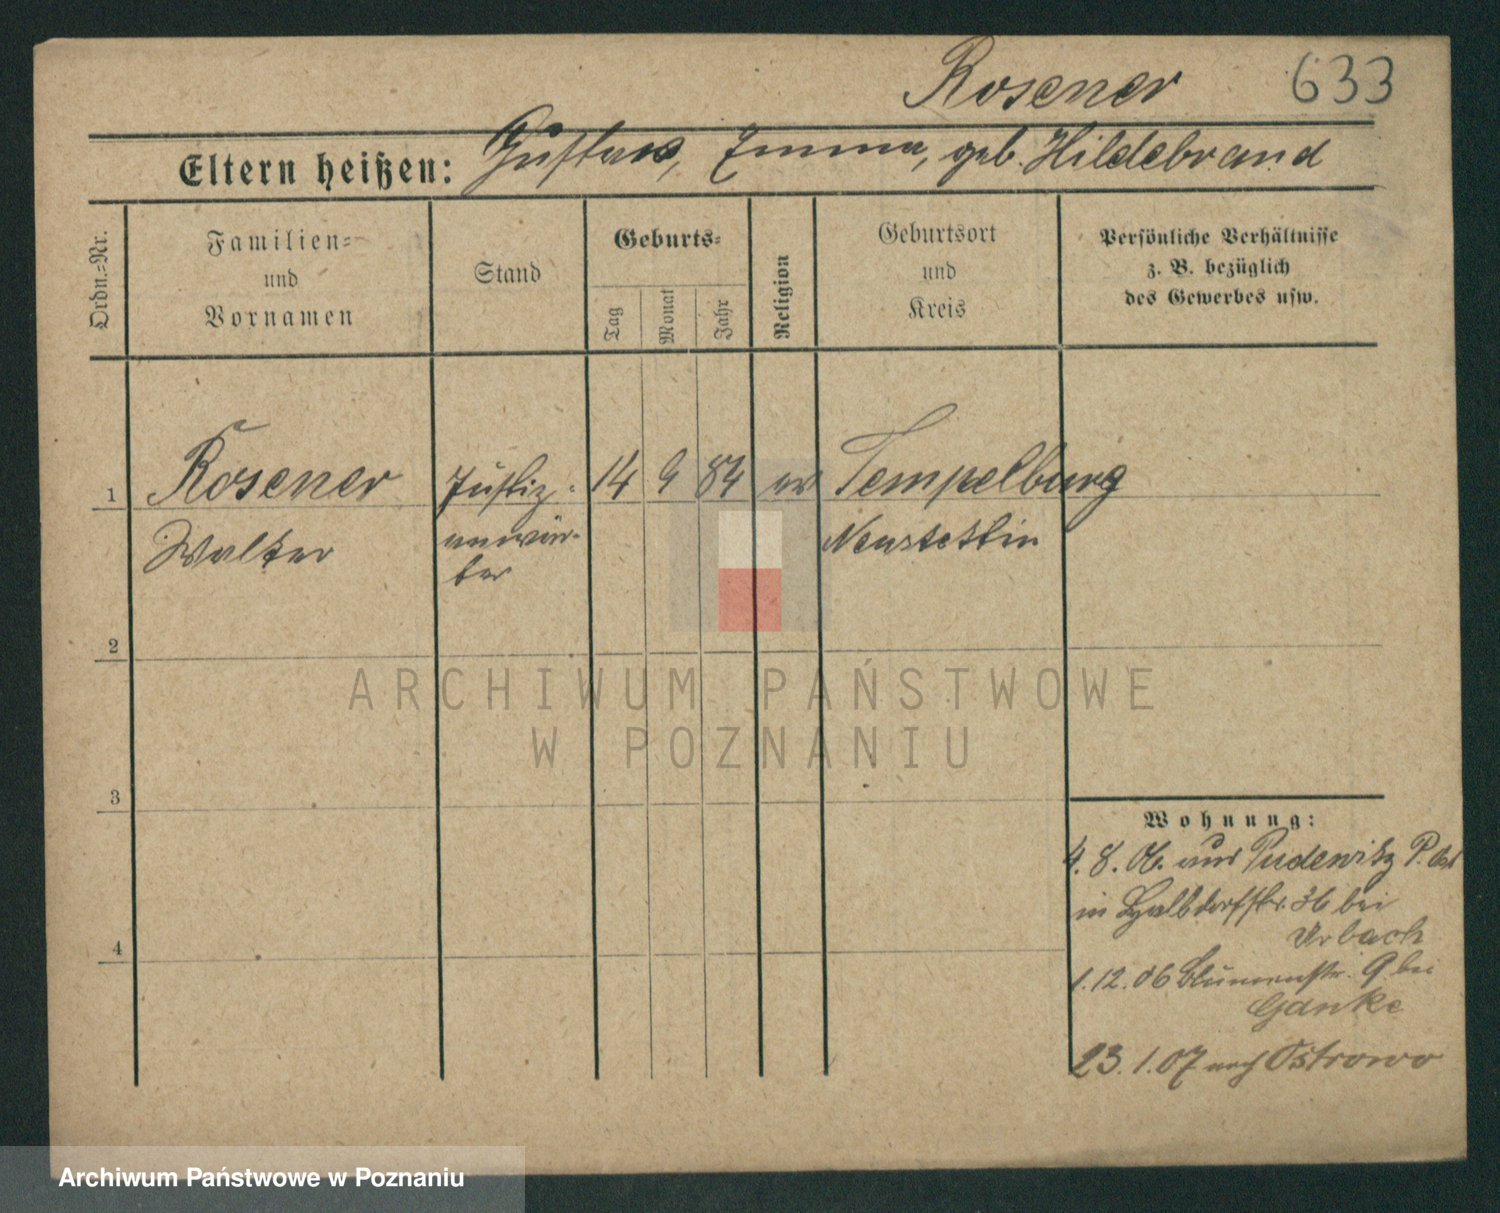 Rosener 633
Eltern heißen: Gustav, Emma, geb. Hildebrand
Ordn.=Nr.
Familien=
und
Vornamen
Stand
Geburts=
Tag
Monat
Jahr
Religion
Geburtsort
und
Kreis
Persönliche Verhältnisse
z. B. bezüglich
des Gewerbes usw.
1 Rosener Justiz- 14 9 84 ev Tempelburg
Walter anwär- Neustettin
ter
2
3
4
Wohnung:
4. 8. 06. aus Pudewitz P. Ost
in Halbdorfstr. 36 bei
Urbach
1. 12. 06 Blumenstr. 9 bei
Ganke
23. 1. 07 nach Ostrowo
ARCHIWUM PAŃSTWOWE
W POZNANIU
Archiwum Państwowe w Poznaniu